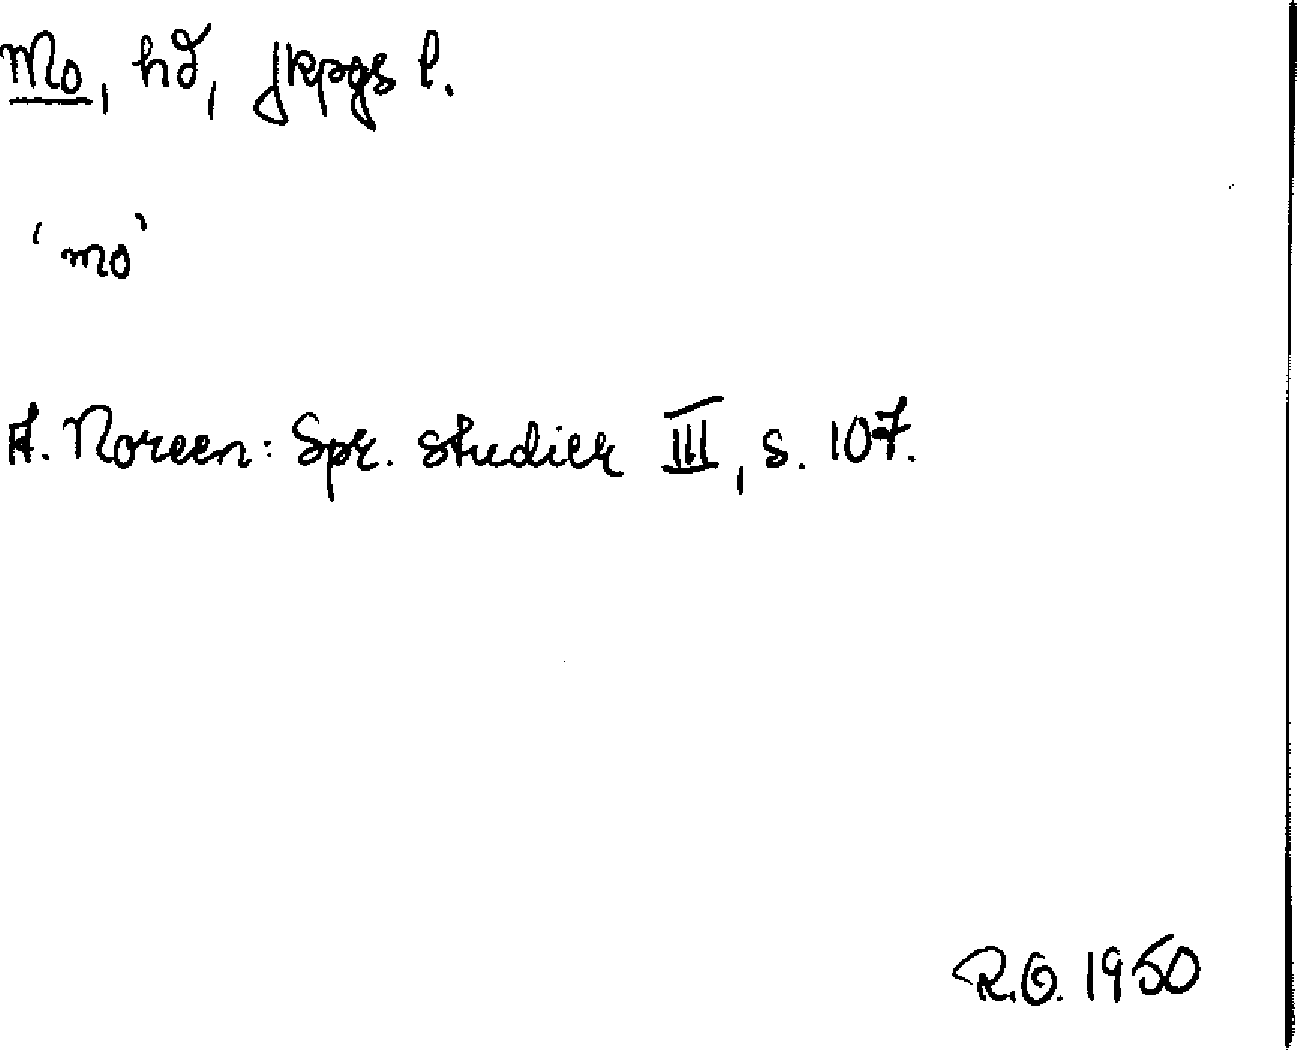 Mo, hd, Jkpgs l.
'mo'
A. Noreen: Spr. studier III, s. 107.
R.O. 1950